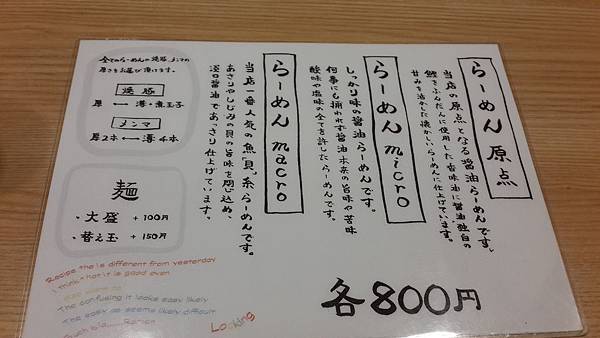 らーめん 原点
当店の原点となる醤油らーめんです。
鰹をふんだんに使用した香味油に醤油独自の
甘みを活かした懐かしいらーめんに仕上げています。
らーめん micro
しっかり味の醤油らーめんです。
何事にも捕われず醤油本来の旨味や苦味
酸味や塩味の全てを許したらーめんです。
らーめん macro
当店一番人気の魚貝系らーめんです。
あさりやしじみの貝の旨味を閉じ込め、
淡口醤油であっさり仕上げています。
各800円
全てのらーめんの焼豚、メンマの
厚さをお選び頂けます。
焼豚
厚 ←→ 薄・煮玉子
メンマ
厚2本 ←→ 薄4本
麺
・大盛 +100円
・替え玉 +150円
Recipe the is different from yesterday
I think hot it is good even
The confusing it looks easy likely
The easy as seems likely difficult
Looking